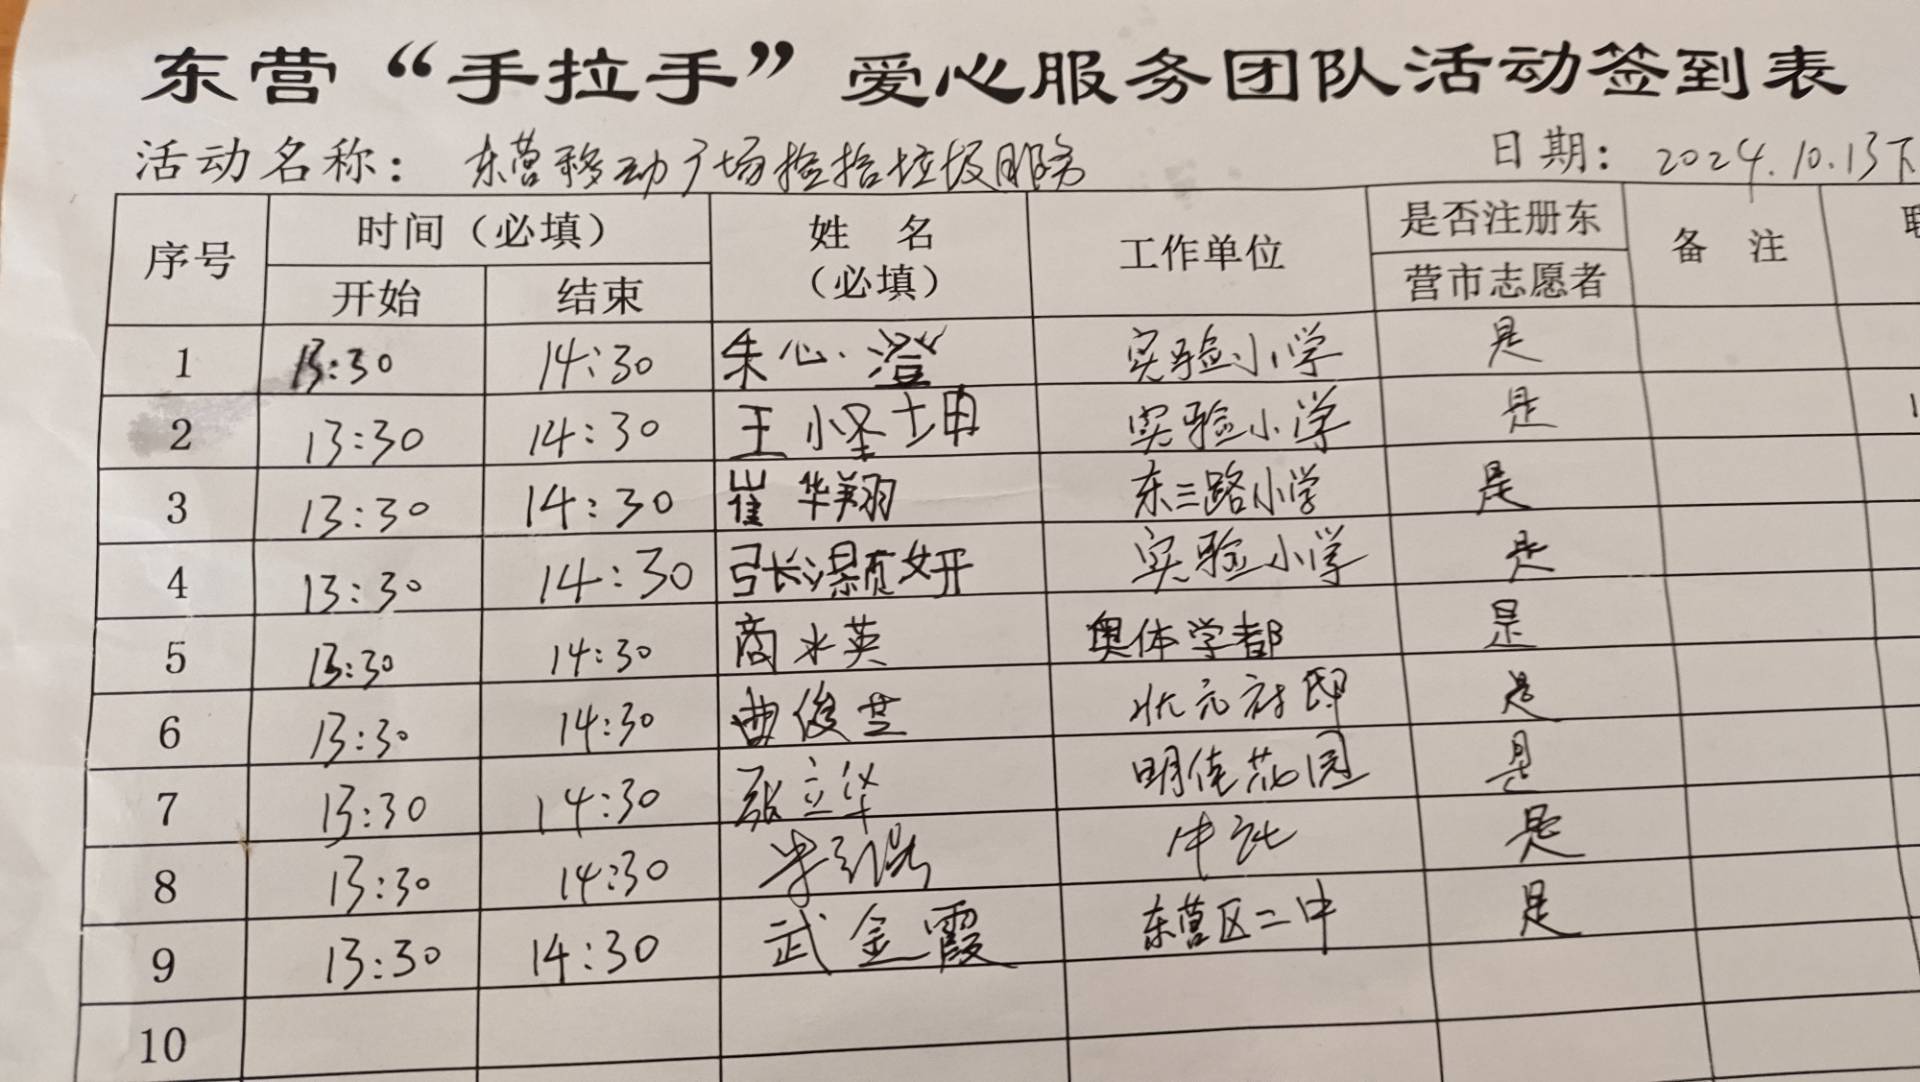 东营“手拉手”爱心服务团队活动签到表
活动名称： 东营移动广场捡拾垃圾服务 日期： 2024.10.13下
序号 时间（必填） 姓 名 （必填） 工作单位 是否注册东 营市志愿者 备 注
开始 结束
1 13:30 14:30 朱心澄 实验小学 是
2 13:30 14:30 王小怪坤 实验小学 是
3 13:30 14:30 崔华翔 东三路小学 是
4 13:30 14:30 张灏妍 实验小学 是
5 13:30 14:30 商水英 奥体学都 是
6 13:30 14:30 曲俊芝 状元府邸 是
7 13:30 14:30 张立华 明佳花园 是
8 13:30 14:30 是
9 13:30 14:30 武金霞 东营区二中 是
10